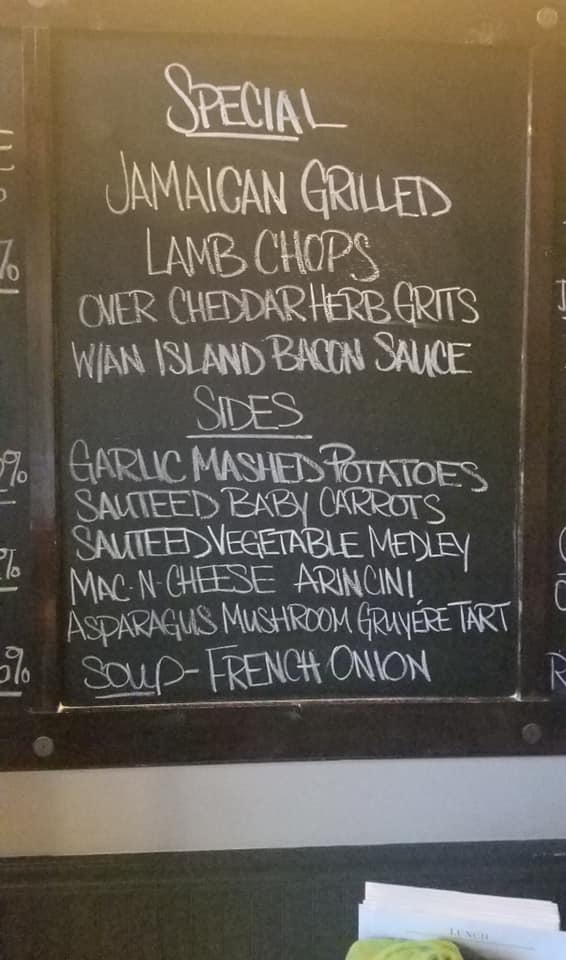 SPECIAL
JAMAICAN GRILLED
LAMB CHOPS
OVER CHEDDAR HERB GRITS
W/AN ISLAND BACON SAUCE
SIDES
GARLIC MASHED POTATOES
SAUTEED BABY CARROTS
SAUTEED VEGETABLE MEDLEY
MAC-N-CHEESE ARINCINI
ASPARAGUS MUSHROOM GRUYÉRE TART
SOUP-FRENCH ONION
%
%
%
%
LUNCH